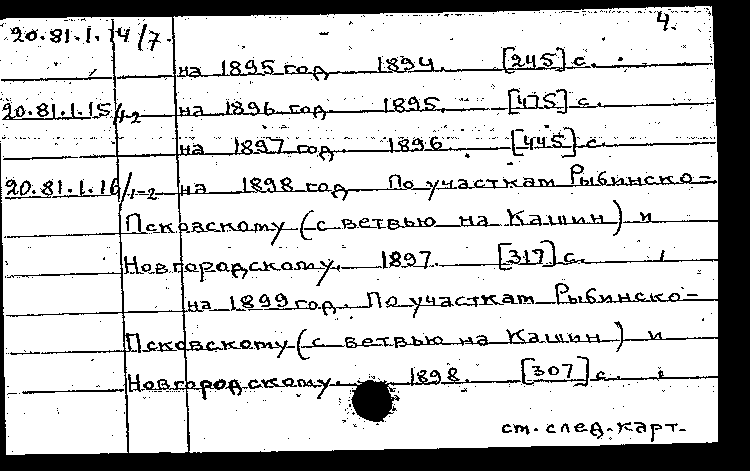 4.
20.81.1.14/7.
на 1895 год 1894. [245] с.
20.81.1.15/1-2 на 1896 год 1895. [475] с.
на 1897 год. 1896 [445] с.
20.81.1.16/1-2 на 1898 год По участкам Рыбинско-
Псковскому (с ветвью на Кашин) и
Новгородскому. 1897. [317] с.
на 1899 год. По участкам Рыбинско-
Псковскому (с ветвью на Кашин) и
Новгородскому. 1898. [307] с.
см. след. карт.